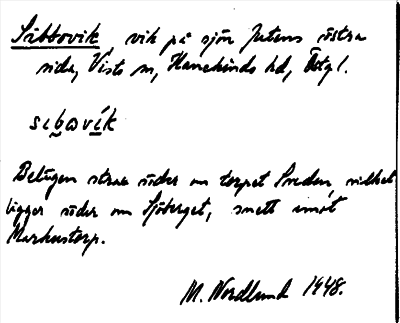 Sibbovik, vik på sjön Jutens östra
sida, Vists sn, Hanekinds hd, Östgl.
sıbɷvík
Belägen strax söder om torpet Sveden, vilket
ligger söder om Sjöberget, snett emot
Markustorp.
M. Nordlund 1948.